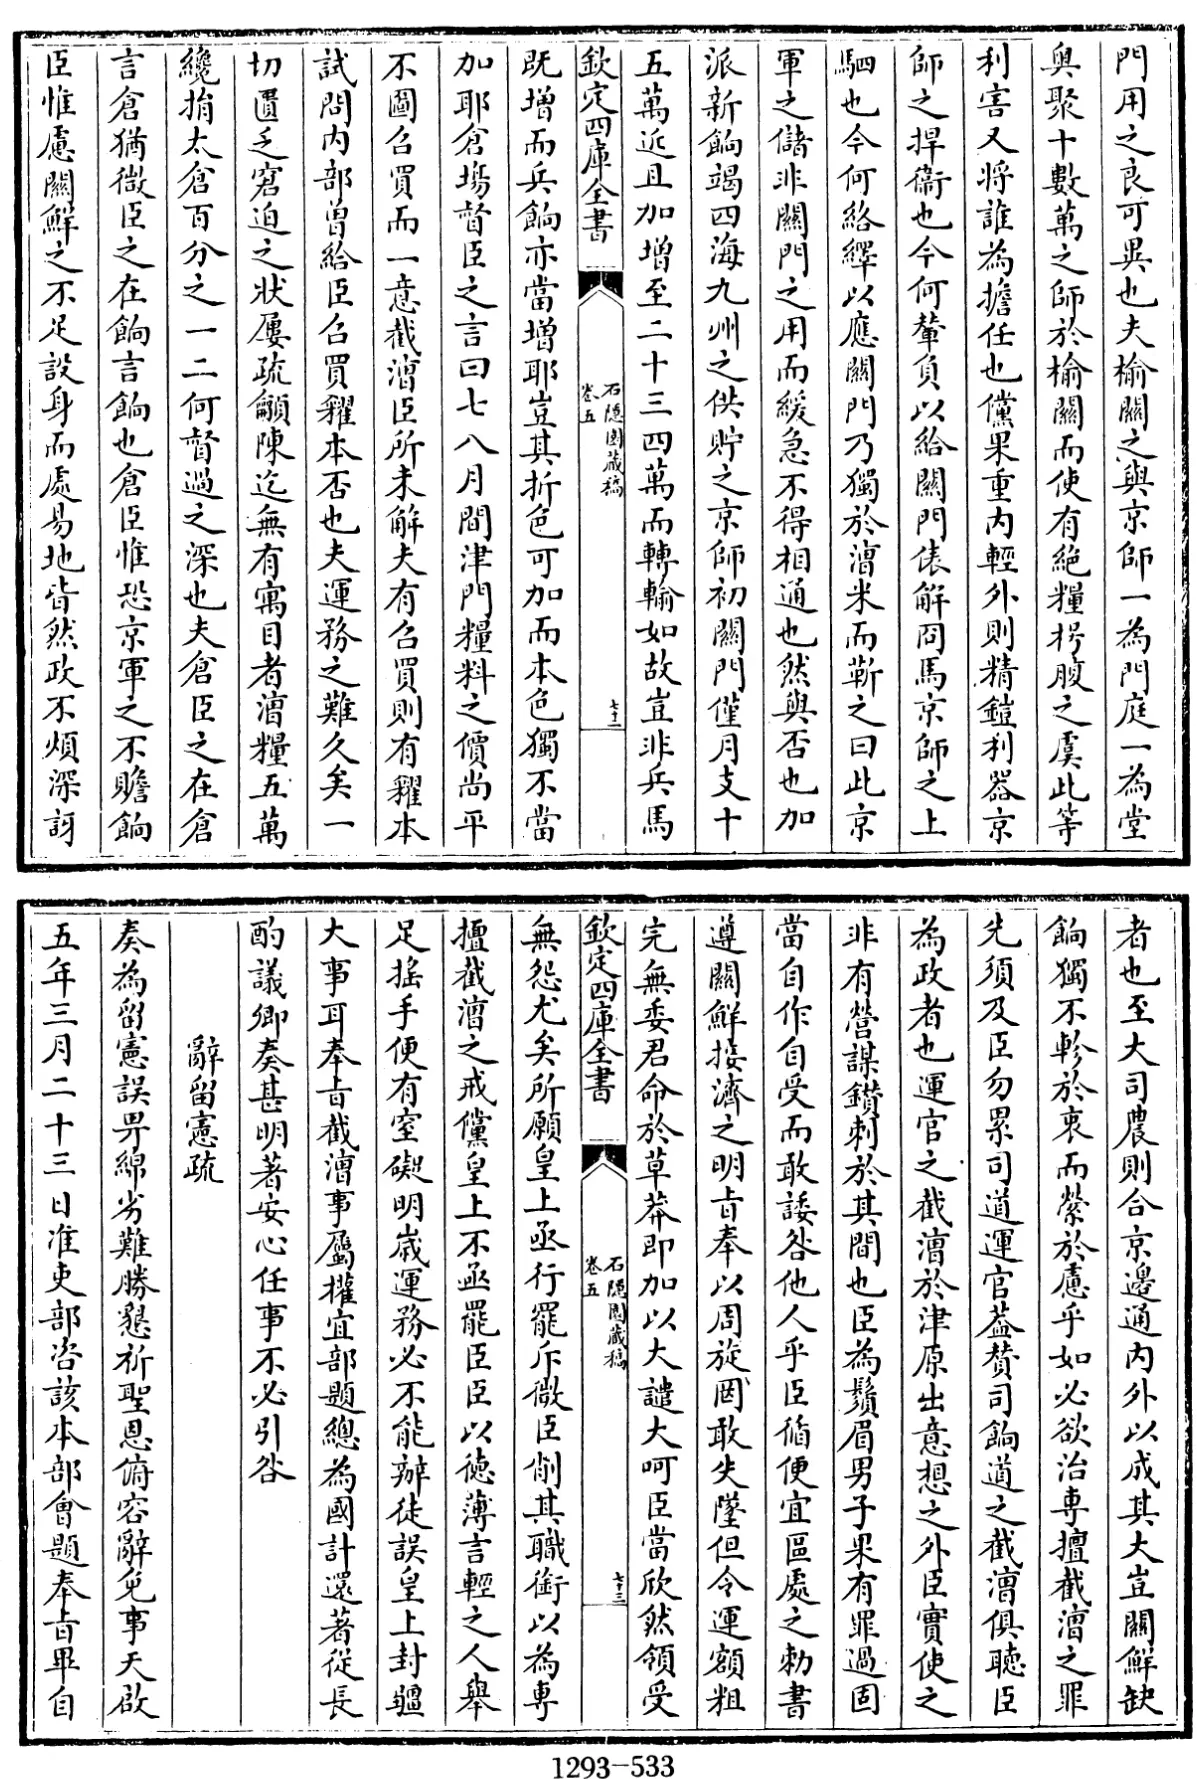 門用之良可異也夫榆關之與京師一為門庭一為堂
奥聚十數萬之師於榆關而使有絶糧枵腹之虞此等
利害又將誰為擔任也儻果重内輕外則精鎧利器京
師之捍衞也今何輦負以給關門俵解冏馬京師之上
駟也今何絡繹以應關門乃獨於漕米而蘄之曰此京
軍之儲非關門之用而緩急不得相通也然與否也加
派新餉竭四海九州之供貯之京師初關門僅月支十
五萬近且加增至二十三四萬而轉輸如故豈非兵馬
欽定四庫全書
石隱園藏稿
卷五
七十二
既增而兵餉亦當增耶豈其折色可加而本色獨不當
加耶倉塲督臣之言曰七八月間津門糧料之價尚平
不圖召買而一意截漕臣所未解夫有召買則有糴本
試問内部曾給臣召買糴本否也夫運務之難久矣一
切匱乏窘迫之狀屢疏籲陳迄無有寓目者漕糧五萬
纔捐太倉百分之一二何督過之深也夫倉臣之在倉
言倉猶微臣之在餉言餉也倉臣惟恐京軍之不贍餉
臣惟慮關鮮之不足設身而處易地皆然政不煩深訝
者也至大司農則合京邊通内外以成其大豈關鮮缺
餉獨不軫於衷而縈於慮乎如必欲治專擅截漕之罪
先須及臣勿累司道運官葢贊司餉道之截漕俱聽臣
為政者也運官之截漕於津原出意想之外臣實使之
非有營謀鑚刺於其間也臣為鬚眉男子果有罪過固
當自作自受而敢諉咎他人乎臣循便宜區處之勅書
遵關鮮接濟之明㫖奉以周旋罔敢失墜但令運額粗
完無委君命於草莽即加以大譴大呵臣當欣然領受
欽定四庫全書
石隱園藏稿
卷五
七十三
無怨尤矣所願皇上亟行罷斥微臣削其職銜以為専
擅截漕之戒儻皇上不亟罷臣臣以徳薄言輕之人舉
足搖手便有窒礙明歲運務必不能辦徒誤皇上封疆
大事耳奉㫖截漕事屬權宜部題總為國計還著從長
酌議卿奏甚明著安心任事不必引咎
辭留憲疏
奏為留憲誤畀綿劣難勝懇祈聖恩俯容辭免事天啟
五年三月二十三日准吏部咨該本部會題奉㫖畢自
1293-533